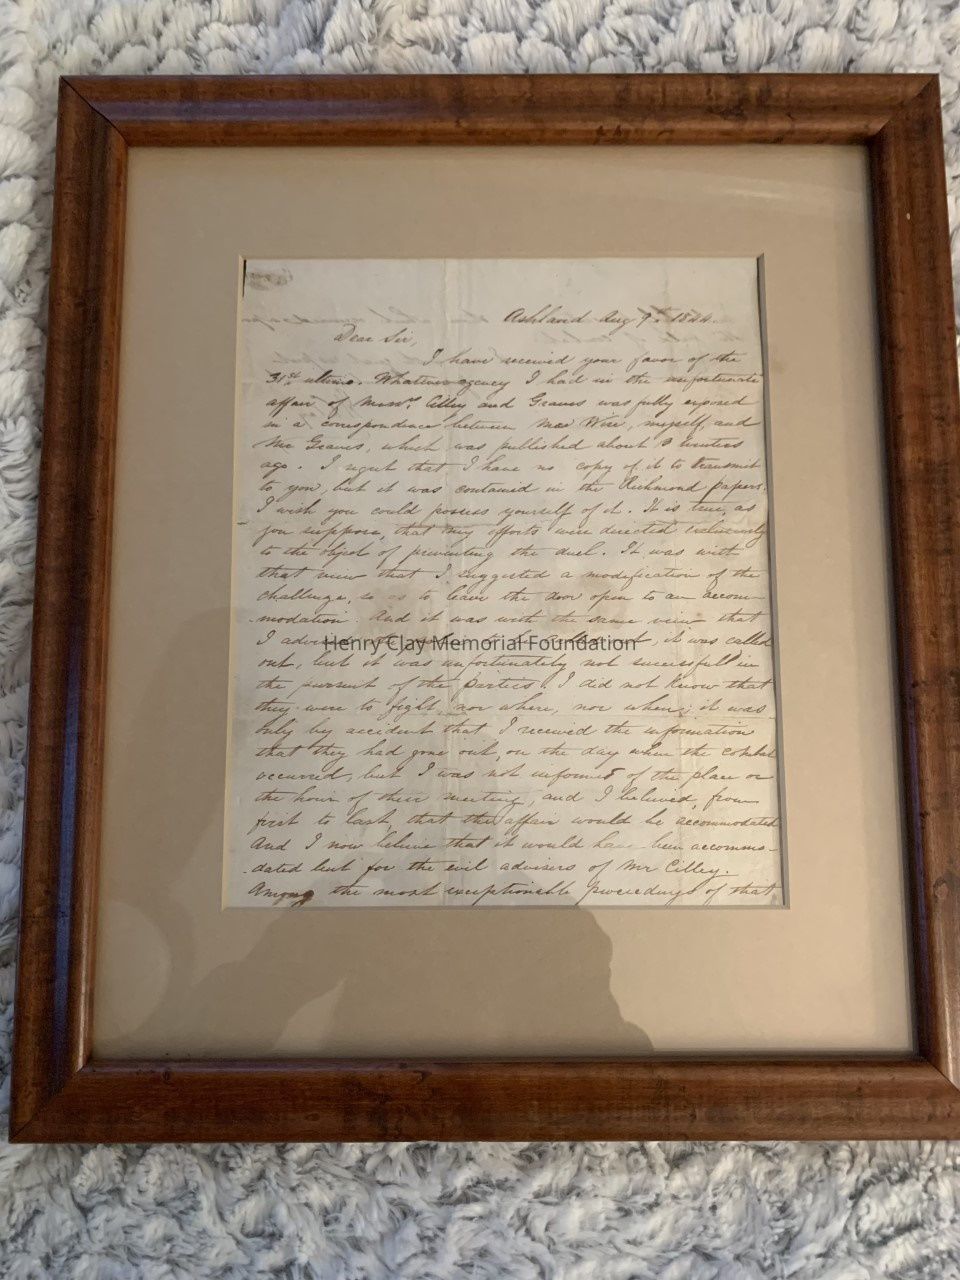 Ashland Aug 9th 1844.
Dear Sir,
I have received your favor of the
31st ultimo. Whatever agency I had in the unfortunate
affair of Messrs Cilley and Graves was fully exposed
in a correspondence between Wise, myself, and
Mr Graves, which was published about winters
ago. I regret that I have no copy of it to transmit
to you, but it was contained in the Richmond papers.
I wish you could possess yourself of it. It is true, as
you suppose, that my efforts were directed exclusively
to the object of preventing the duel. It was with
that view that I suggested a modification of the
challenge, so as to leave the door open to an accom-
-modation. And it was with the same view that
I it was called
Henry Clay Memorial Foundation
out, but it was unfortunately not successful in
the pursuit of the parties. I did not know that
they were to fight, nor where, nor when; it was
only by accident that I received the information
that they had gone out, on the day when the combat
occurred, but I was not informed of the place or
the hour of their meeting, and I believed, from
first to last, that the affair would be accommodated
And I now believe that it would have been accommo-
-dated but for the evil advisers of Mr Cilley.
Among the most exceptionable proceedings of that